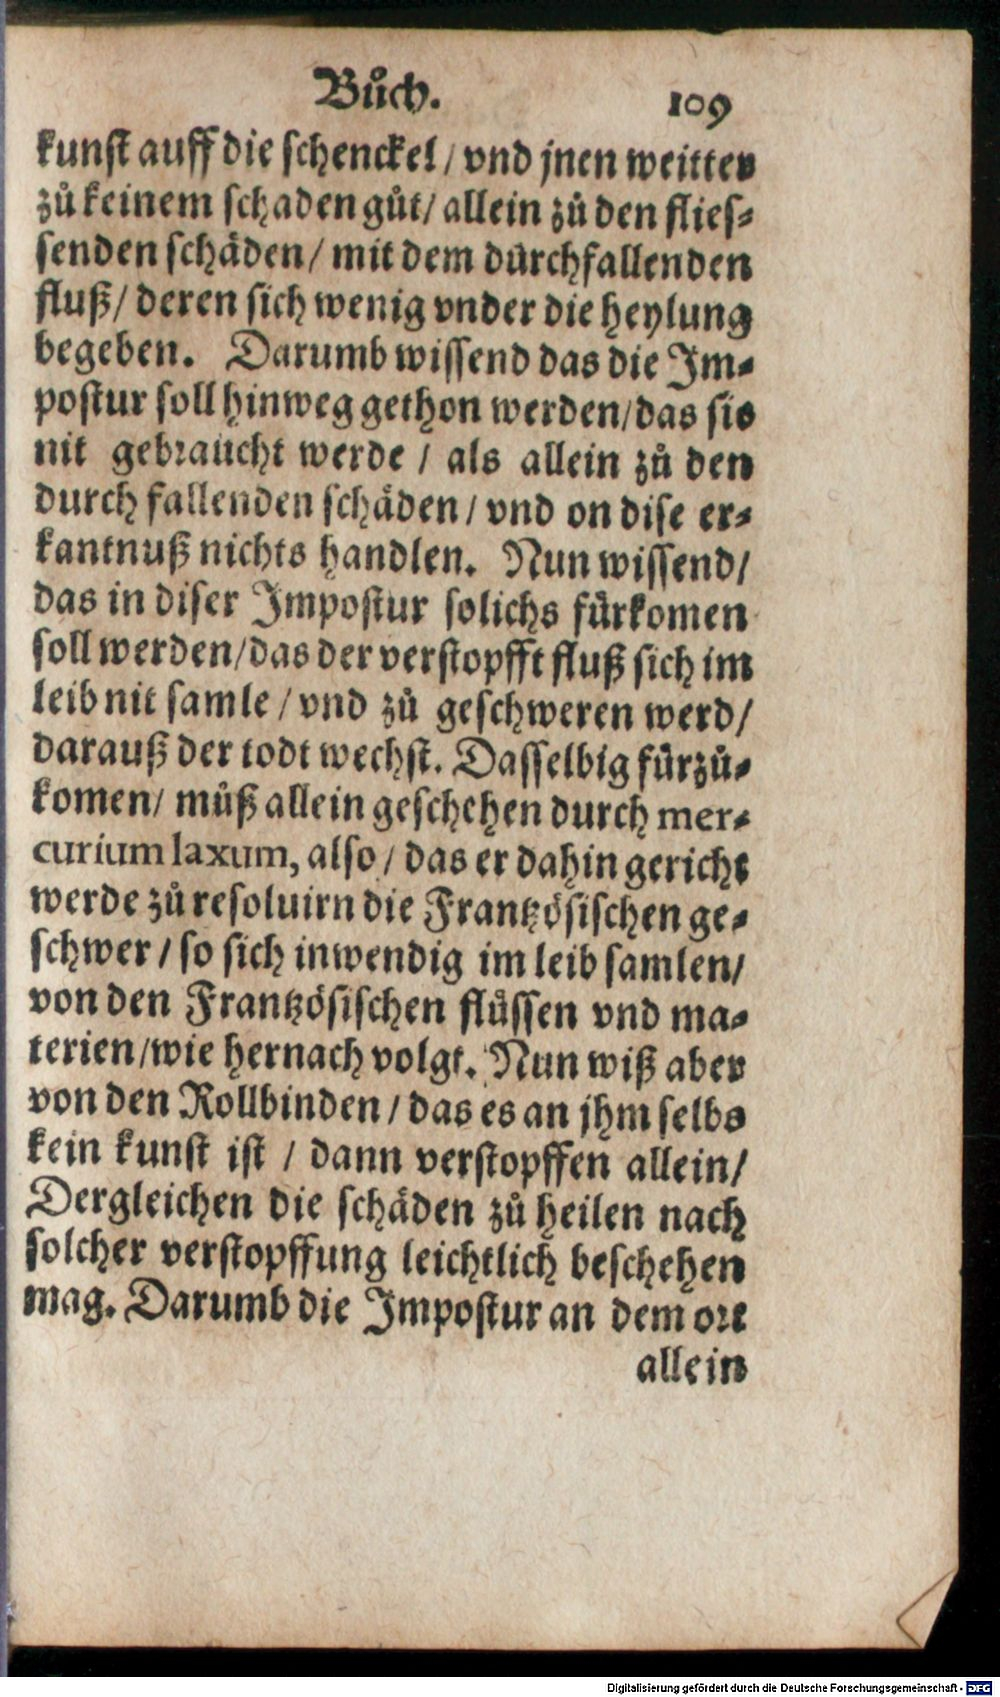 Bůch. 109
kunst auff die schenckel / vnd jnen weitter
zů keinem schaden gůt / allein zů den flies⸗
senden schäden / mit dem durchfallenden
fluß / deren sich wenig vnder die heylung
begeben. Darumb wissend das die Im⸗
postur soll hinweg gethon werden / das sie
nit gebraucht werde / als allein zů den
durch fallenden schäden / vnd on dise er⸗
kantnuß nichts handlen. Nun wissend /
das in diser Impostur solichs fürkomen
soll werden / das der verstopfft fluß sich im
leib nit samle / vnd zů geschweren werd /
darauß der todt wechst. Dasselbig fürzů⸗
komen / můß allein geschehen durch mer⸗
curium laxum, also / das er dahin gericht
werde zů resoluirn die Frantzösischen ge⸗
schwer / so sich inwendig im leib samlen /
von den Frantzösischen flüssen vnd ma⸗
terien / wie hernach volgt. Nun wiß aber
von den Rollbinden / das es an jhm selbs
kein kunst ist / dann verstopffen allein /
Dergleichen die schäden zů heilen nach
solcher verstopffung leichtlich beschehen
mag. Darumb die Impostur an dem ort
allein
Digitalisierung gefördert durch die Deutsche Forschungsgemeinschaft - DFG